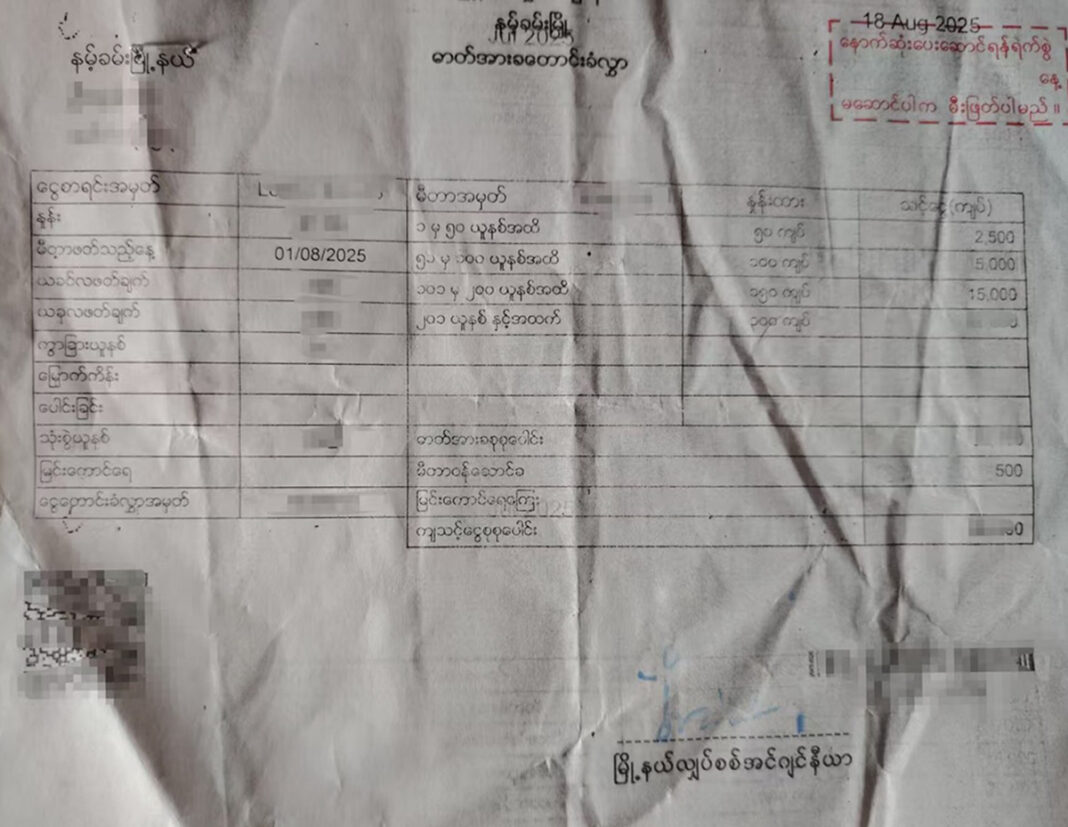 နမ့်ခမ်းမြို့
Jul 2025
ဓာတ်အားခတောင်းခံလွှာ
နမ့်ခမ်းမြို့နယ်
18 Aug 2025
နောက်ဆုံးပေးဆောင်ရန်ရက်စွဲ
နေ့
မဆောင်ပါက မီးဖြတ်ပါမည်။
ငွေစာရင်းအမှတ် မီတာအမှတ် နှုန်းထား သင့်ငွေ(ကျပ်)
နှုန်း ၁ မှ ၅၀ ယူနစ်အထိ ၅၀ ကျပ် 2,500
မီတာဖတ်သည့်နေ့ 01/08/2025 ၅၁ မှ ၁၀၀ ယူနစ်အထိ ၁၀၀ ကျပ် 5,000
ယခင်လဖတ်ချက် ၁၀၁ မှ ၂၀၀ ယူနစ်အထိ ၁၅၀ ကျပ် 15,000
ယခုလဖတ်ချက် ၂၀၁ ယူနစ် နှင့်အထက် ၃၀၀ ကျပ်
ကွာခြားယူနစ်
မြှောက်ကိန်း
ပေါင်းခြင်း
သုံးစွဲယူနစ် ဓာတ်အားခစုစုပေါင်း
မြင်းကောင်ရေ မီတာဝန်ဆောင်ခ 500
ငွေတောင်းခံလွှာအမှတ် မြင်းကောင်ရေကြေး
ကျသင့်ငွေစုစုပေါင်း
မြို့နယ်လျှပ်စစ်အင်ဂျင်နီယာ